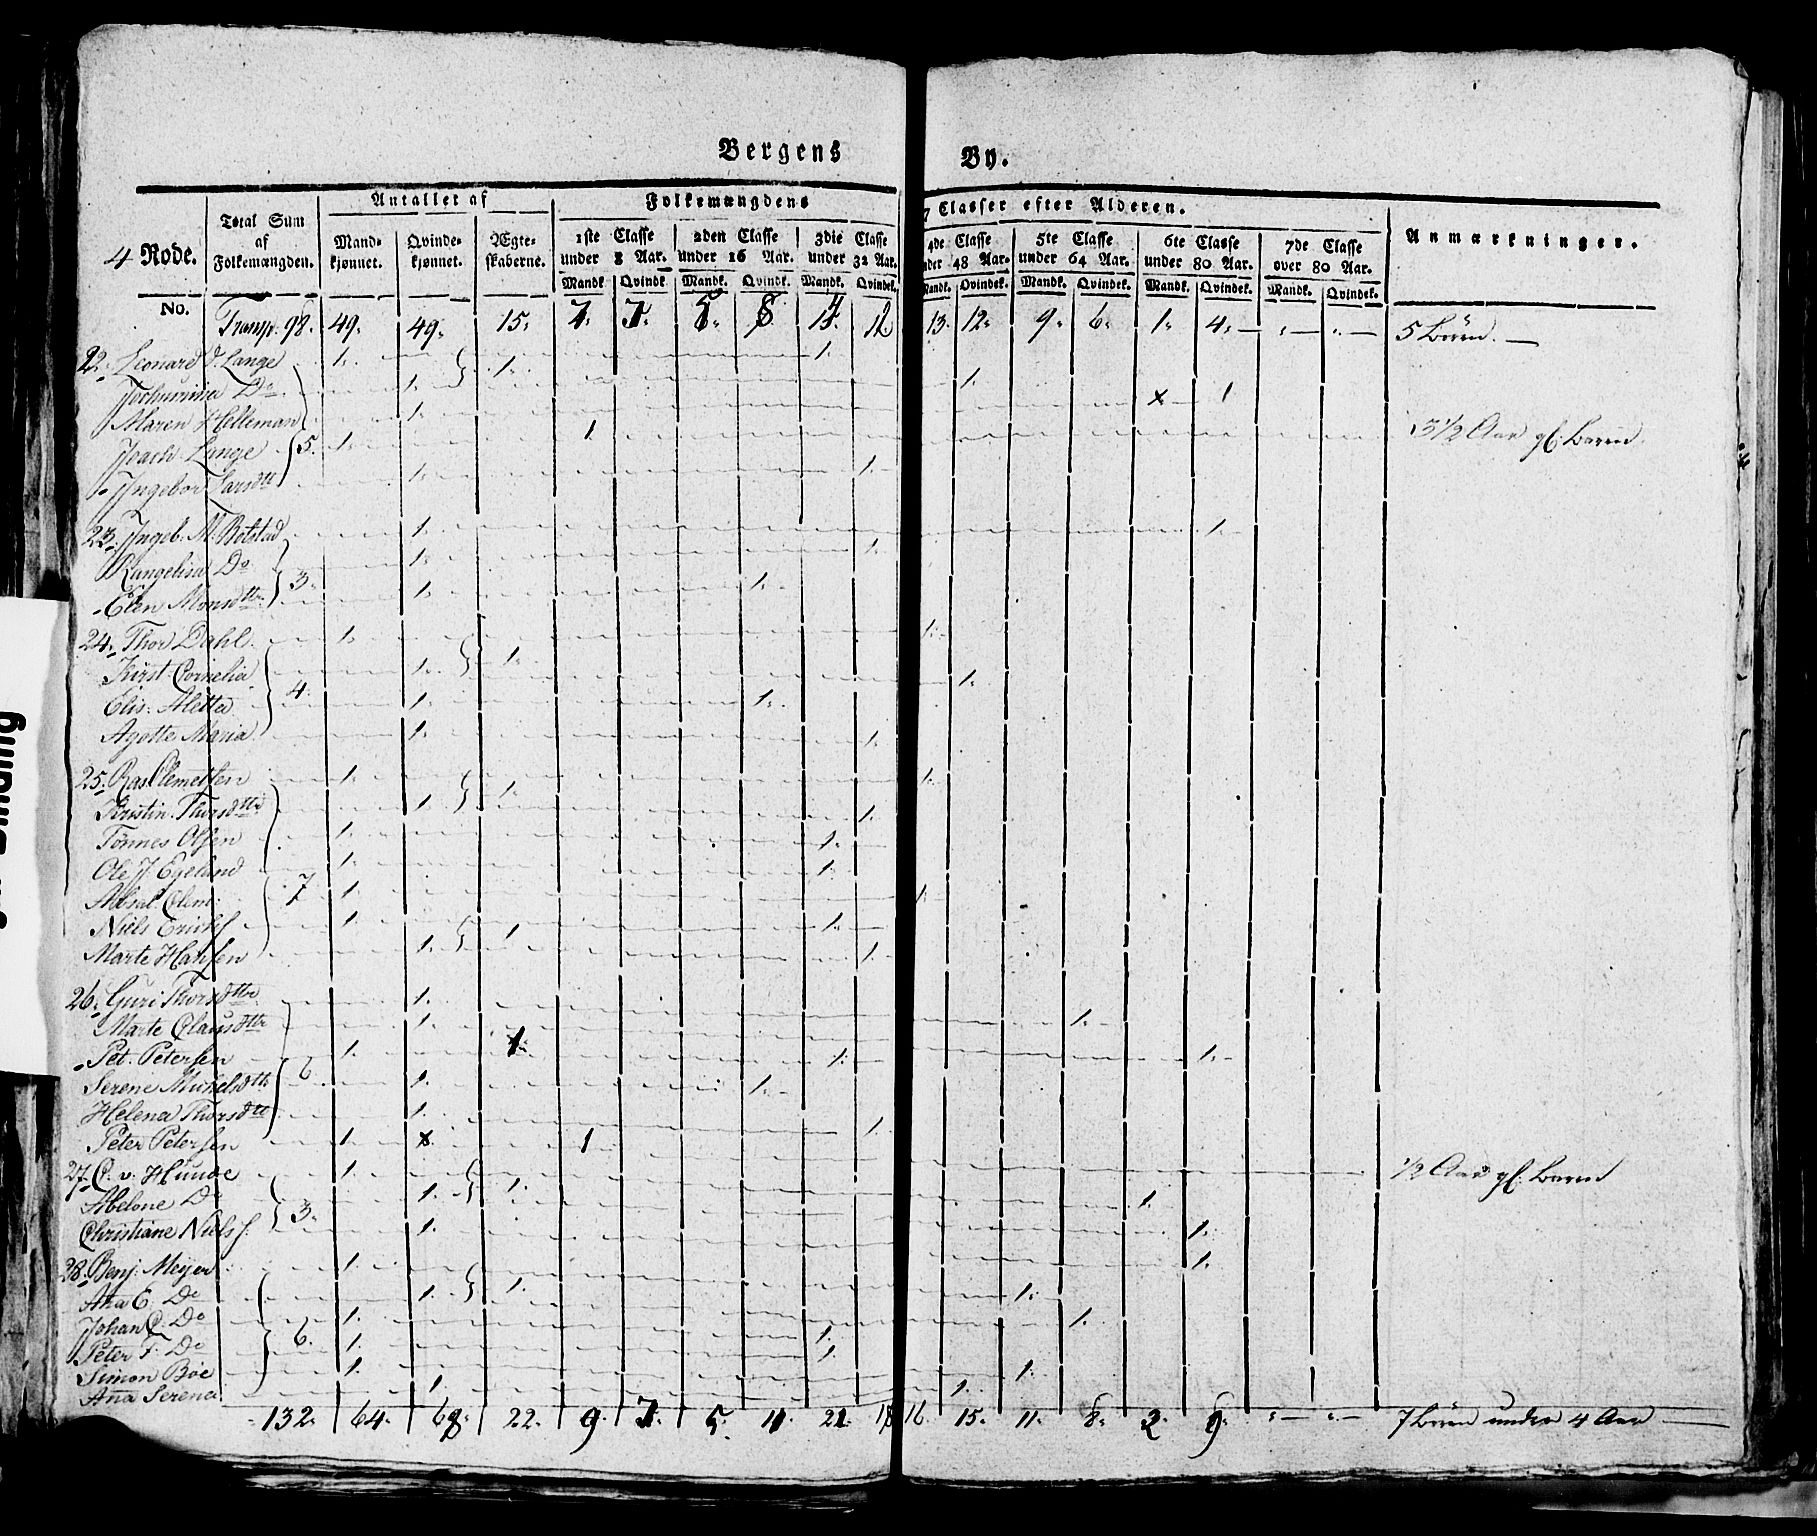 Bergens By.
Antallet af Folkemængdens 7 Classer efter Alderen.
4 Rode. Total Sum af Folkemængden. Mandkjønnet. Qvindekjønnet. Ægteskaberne. 1ste Classe under 8 Aar. 2den Classe under 16 Aar. 3die Classe under 32 Aar. 4de Classe under 48 Aar. 5te Classe under 64 Aar. 6te Classe under 80 Aar. 7de Classe over 80 Aar. Anmærkninger.
No. Mandk. Qvindk. Mandk. Qvindk. Mandk. Qvindek. Mandk. Qvindek. Mandk. Qvindek. Mandk. Qvindek. Mandk. Qvindek.
Transp. 98. 49. 49. 15. 13. 12. 9. 6. 1. 4. 5 Börn.
22. Leonard d. Lange 1. 1. 1.
Jochumina Do 1. 1.
Maren Helleman 1. x 1
Joach Lange 5. 1. 1 3 1/2 Aar gl. Barn.
Ingebor Larsdtt 1. 1.
23. Ingeb. M. Botstad 1. 1.
Rangelisa Do 1. 1.
Elen Monsdttr 3. 1. 1.
24. Thor Dahl 1. 1.
Kirst. Cornelia 1. 1. 1.
Elis. Aletta 4. 1. 1.
Agotte Maria 1. 1.
25. Ras Clemetsen 1. 1.
Kristin. Thorsdttr 1. 1. 1.
Tönnes Olsen 1. 1.
Ole J Egeland 1. 1.
Absal. Clem: 7 1. 1.
Niels Ericks 1. 1.
Marte Hansen 1. 1 1.
26. Guri Thorsdttr 1.
Marte Clausdttr 1. 1.
Pet. Petersen 1. 1. 1. 1.
Serene Mickelsdtt 6 1. 1.
Helena Thorsdtt 1. 1.
Peter Petersen 1. x 1 1/2 Aar gl. Barn
27. C. v. Hunde 1. 1.
Abelone Do 3. 1. 1. 1.
Christiane Niels 1. 1.
28. Benj. Meyer 1. 1.
Ana E. Do 1. 1. 1.
Johan C. Do 1. 1.
Peter F. Do 6. 1. 1.
Simon Böe 1. 1.
Ana Serena 1. 1.
132. 64. 68. 22. 9. 7. 5. 11. 21. 18 16. 15. 11. 8. 2. 9. 7 Börn under 4 Aar